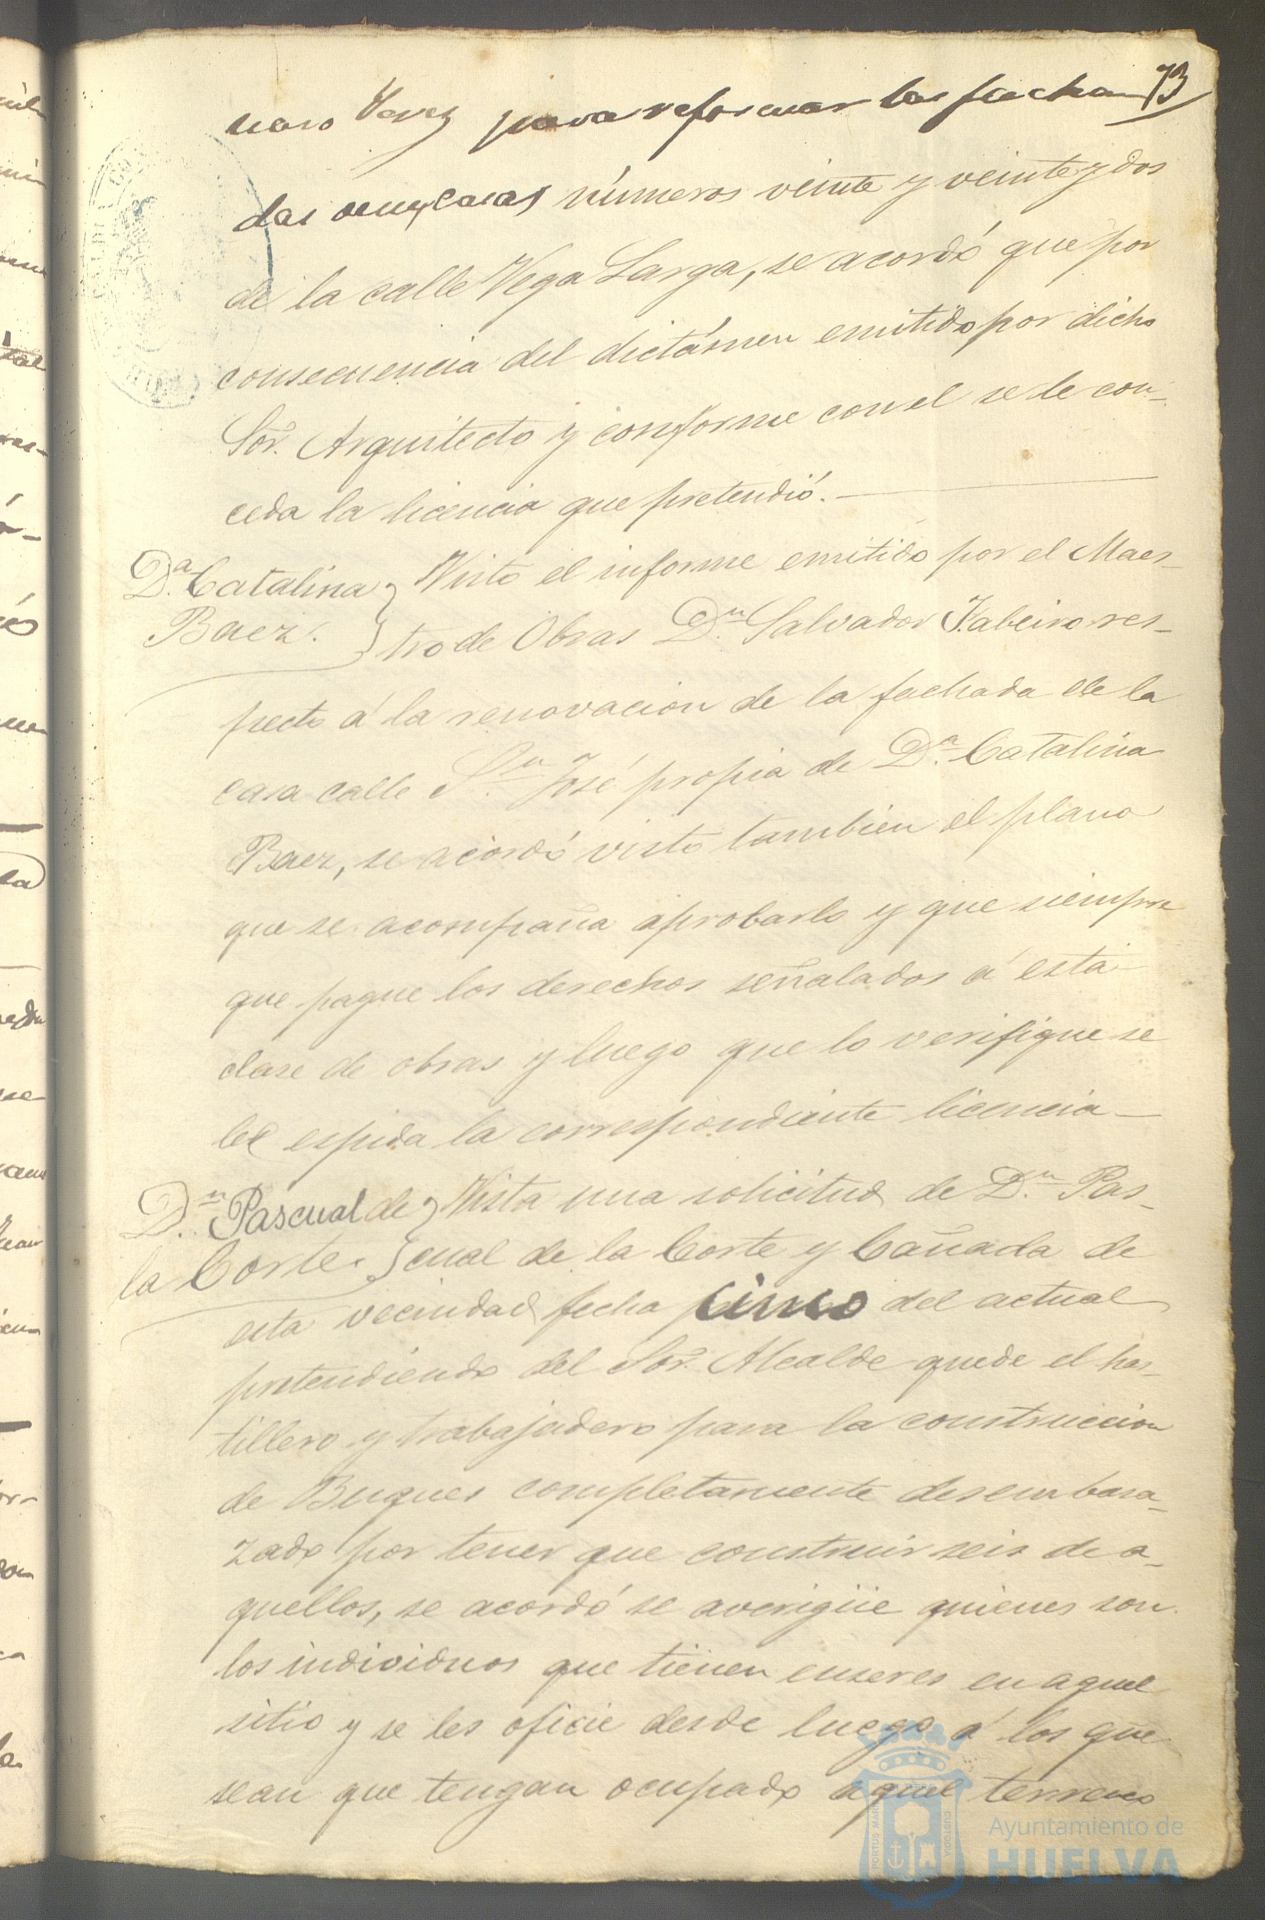 73
naso Perez para reformar las facha
das de sus casas números veinte y veinte y dos
de la calle Vega Larga, se acordó que por
consecuencia del dictámen emitido por dicho
Sor. Arquitecto y conforme con el se le con-
ceda la licencia que pretendió.
Da. Catalina
Baez.
Visto el informe emitido por el Maes-
tro de Obras Dn. Salvador res-
pecto á la renovacion de la fachada de la
casa calle Sn. José propia de Da. Catalina
Baez, se acordó visto tambien el plano
que se acompaña aprobarlo y que siempre
que pague los derechos señalados á esta
clase de obras y luego que lo verifique se
le espida la correspondiente licencia
Dn. Pascual de
la Corte.
Vista una solicitud de Dn. Pas-
cual de la Corte y Cañada de
esta vecindad fecha cinco del actual
pretendiendo del Sor. Alcalde quede el has-
tillero y trabajadero para la construccion
de Buques completamente desembara-
zado por tener que construir seis de a-
quellos, se acordó se averigüe quienes son
los individuos que tienen enseres en aquel
sitio y se les oficie desde luego á los que
sean que tengan ocupado aquel terreno
Ayuntamiento de
HUELVA